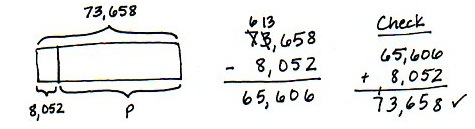 73,658
8,052 P
6 13
73,658
- 8,052
65,606
Check
65,606
+ 8,052
73,658 ✓